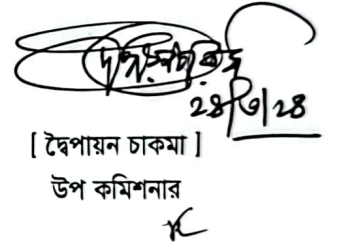 ২৪/৩/২৪
[ দ্বৈপায়ন চাকমা ]
উপ কমিশনার